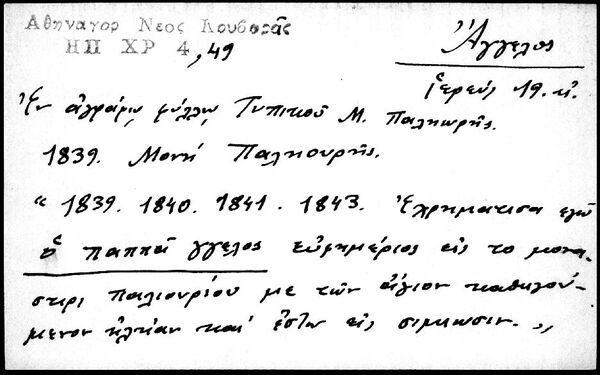 Αθηναγορ Νεος Κουβαρᾶς
ΗΠ ΧΡ 4, 49
Ἄγγελος
ἱερεύς 19. αἰ.
Ἐν ἀγράφῳ φύλλῳ Τυπικοῦ Μ. Παληωρῆς.
1839. Μονή Παληουρῆς.
“ 1839. 1840. 1841. 1843. Ἐχρημάτισα ἐγώ
ὁ παππᾶ γγελος εὐφημέριος εἰς το μονα-
στιρι παλιουρίου με τῶν ἅγιον καθιγού-
μενον ἠλπίαν καί ἔστω εἰς σιμιωσιν. „